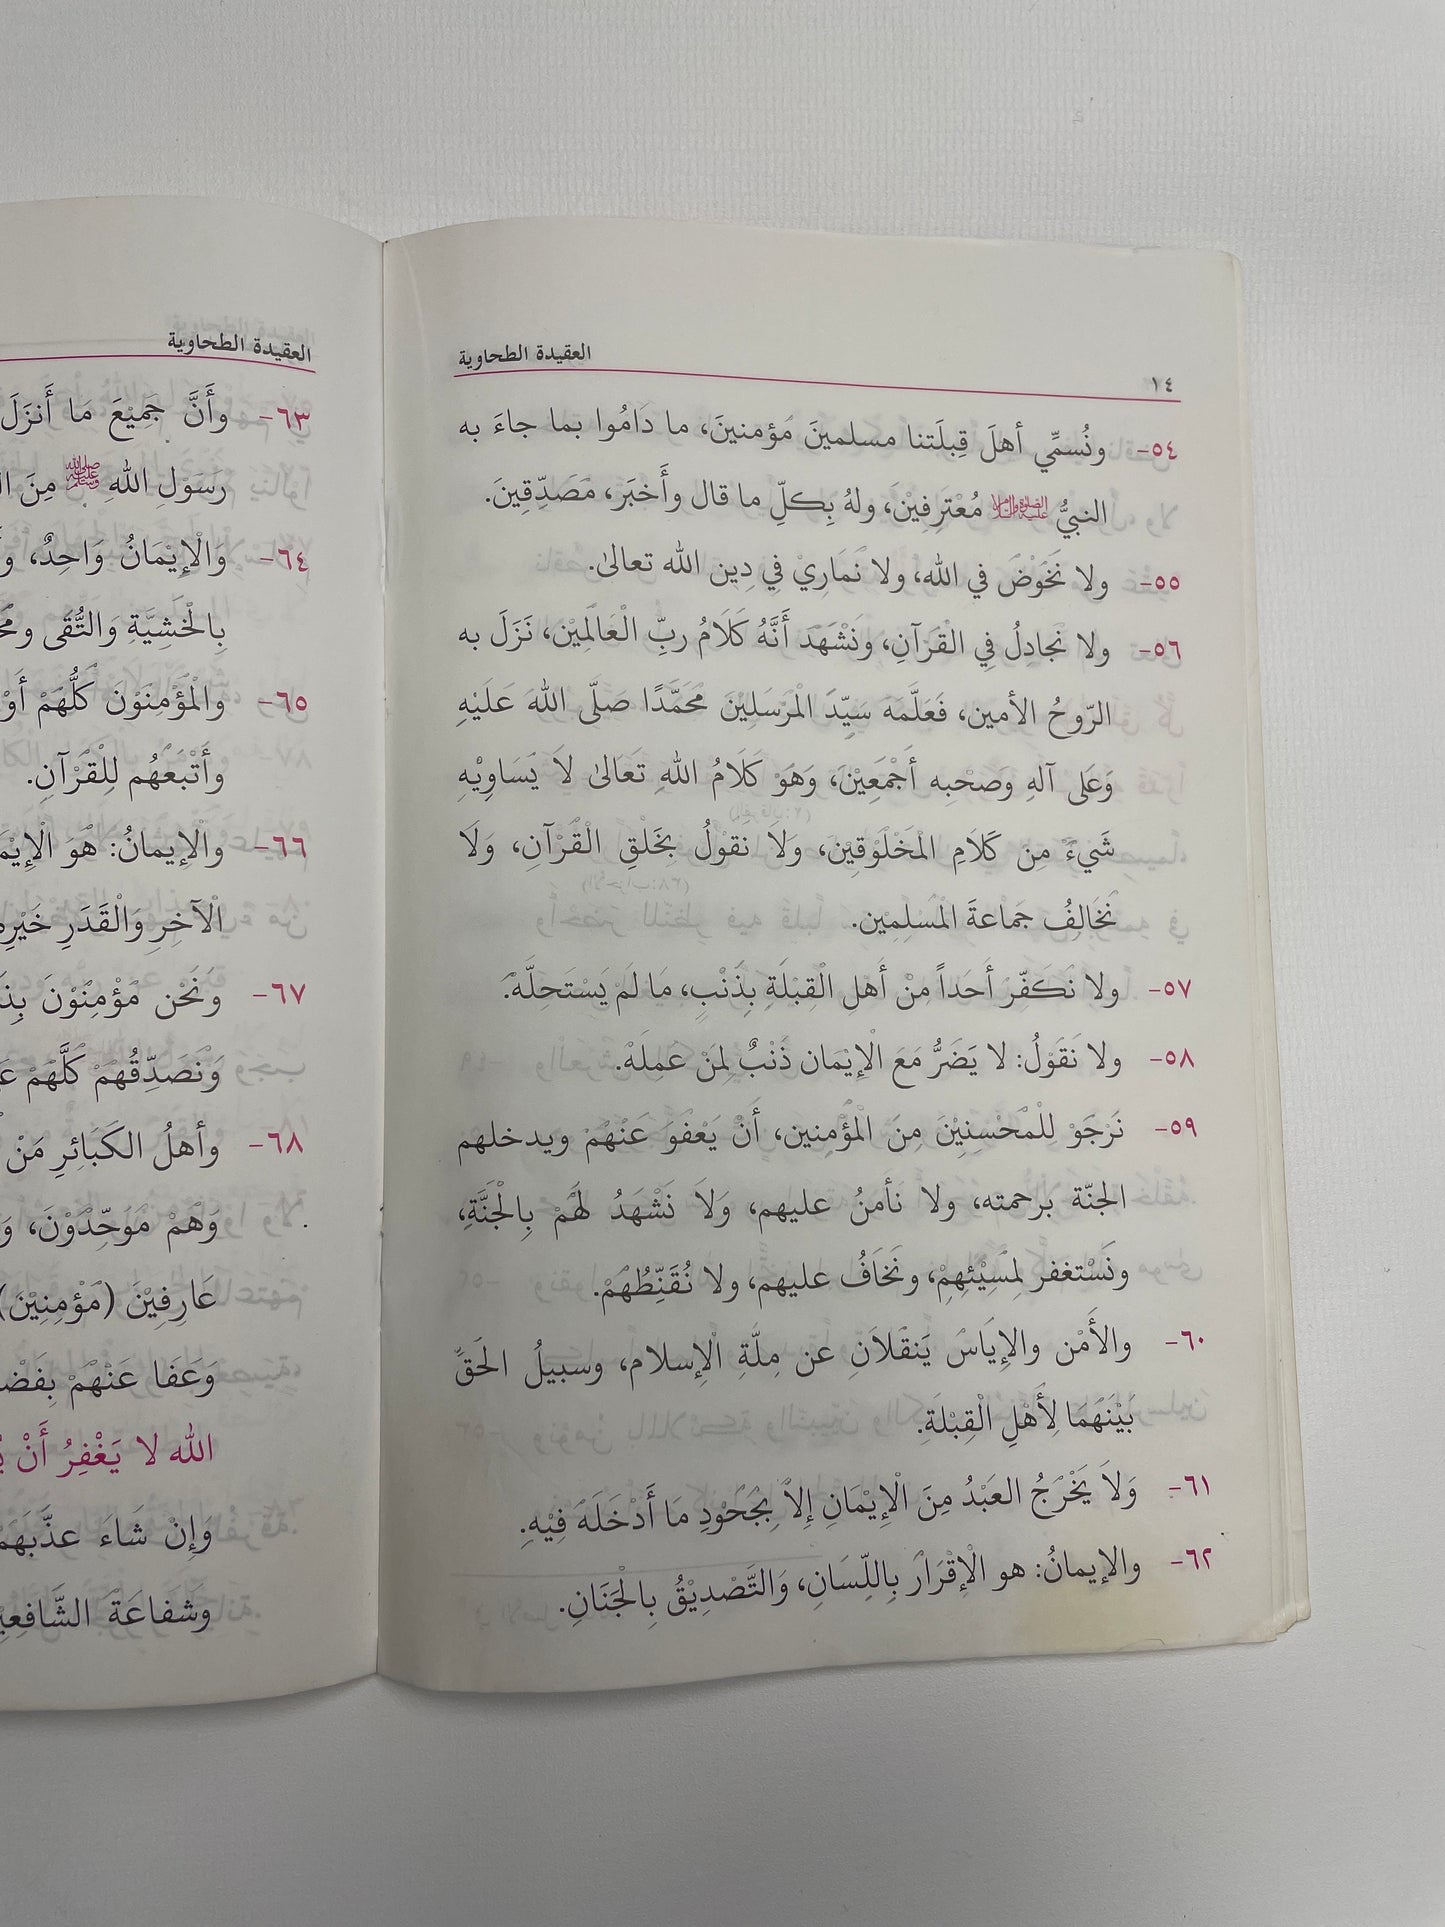 ١٤ العقيدة الطحاوية
٥٤- ونُسمِّي أهلَ قِبلَتنا مسلمينَ مُؤمنينَ، ما دَامُوا بما جاءَ به
النبيُّ عليه الصلاة والسلام مُعْتَرِفِيْنَ، ولهُ بِكلِّ ما قال وأَخبَر، مُصَدِّقِينَ.
٥٥- ولا نَخُوْضُ في الله، ولا نُمَارِيْ فِي دِين الله تعالىٰ.
٥٦- ولا نُجَادِلُ فِي الْقُرَآنِ، ونَشْهَدُ أَنَّهُ كَلَامُ ربِّ الْعَالَمِيْن، نَزَلَ به
الرّوحُ الأمين، فَعَلَّمَه سَيِّدَ الْمُرْسَلِيْنَ مُحَمَّدًا صَلّى اللهُ عَلَيْهِ
وَعَلى آلهِ وَصَحْبِه أَجْمَعِيْنَ، وَهُوَ كَلَامُ اللهِ تَعَالىٰ لاَ يُسَاوِيْهِ
شَيءٌ مِن كَلَامِ الْمَخْلُوْقِيْنَ، ولا نقوْلُ بخَلْقِ الْقُرْآنِ، وَلَا
نُخَالِفُ جَمَاعةَ الْمُسْلِمِين.
٥٧- ولا نُكَفِّرُ أَحَداً مِنْ أَهلِ الْقِبْلَةِ بِذَنْبٍ، مَا لَمْ يَسْتَحِلَّهُ.
٥٨- ولا نَقُوْلُ: لا يَضُرُّ مَعَ الْإِيْمَان ذَنْبٌ لِمَنْ عَمِلَهُ.
٥٩- نَرْجُوْ لِلْمُحْسِنِيْنَ مِنَ الْمُؤْمِنين، أَنْ يَعْفُوَ عَنْهُمْ ويدخلهم
الجنّة برحمته، ولا نأمنُ عليهم، وَلاَ نَشْهَدُ لَهُمْ بِالْجَنَّةِ،
ونَسْتغفر لِمُسِيْئِهِمْ، ونَخَافُ عليهم، ولا نُقَنِّطُهُمْ.
٦٠- والأَمْن والإِيَاسُ يَنقُلَانِ عن مِلَّةِ الْإسلام، وسبيلُ الْحَقِّ
بَيْنَهُمَا لِأَهْلِ الْقِبْلَةِ.
٦١- وَلاَ يَخْرُجُ العَبْدُ مِنَ الْإِيْمَانِ إِلاَّ بِجُحُوْدِ مَا أَدْخَلَهُ فِيْهِ.
٦٢- والإيمانُ: هو الْإِقْرَارُ بِاللِّسَانِ، وَالتَّصْدِيْقُ بِالْجَنَانِ.
العقيدة الطحاوية
٦٣- وأَنَّ جَمِيْعَ مَا أَنزَلَ
رَسَوْلِ اللهِ ﷺ مِنَ
٦٤- وَالْإِيْمَانُ وَاحِدٌ،
بِالْخَشِيَّةِ وَالتُّقَى
٦٥- والْمُؤْمِنُوْنَ كُلُّهُمْ
وأَتْبَعُهُم لِلْقُرْآنِ.
٦٦- والْإِيمانُ: هُوَ
الْآخِرِ وَالْقَدَرِ خَيْرِهِ
٦٧- ونَحْن مُؤْمِنُوْنَ
وَنُصَدِّقُهُمْ كُلَّهُمْ
٦٨- وأهلُ الكَبَائِرِ مَنْ
وَهُمْ مُوَحِّدُوْنَ،
عَارِفِيْنَ (مُؤْمِنِيْنَ)
وَعَفَا عَنْهُمْ
الله لا يَغْفِرُ أَنْ
وَإِنْ شَاءَ عذَّبَهُمْ
وشَفَاعَةُ